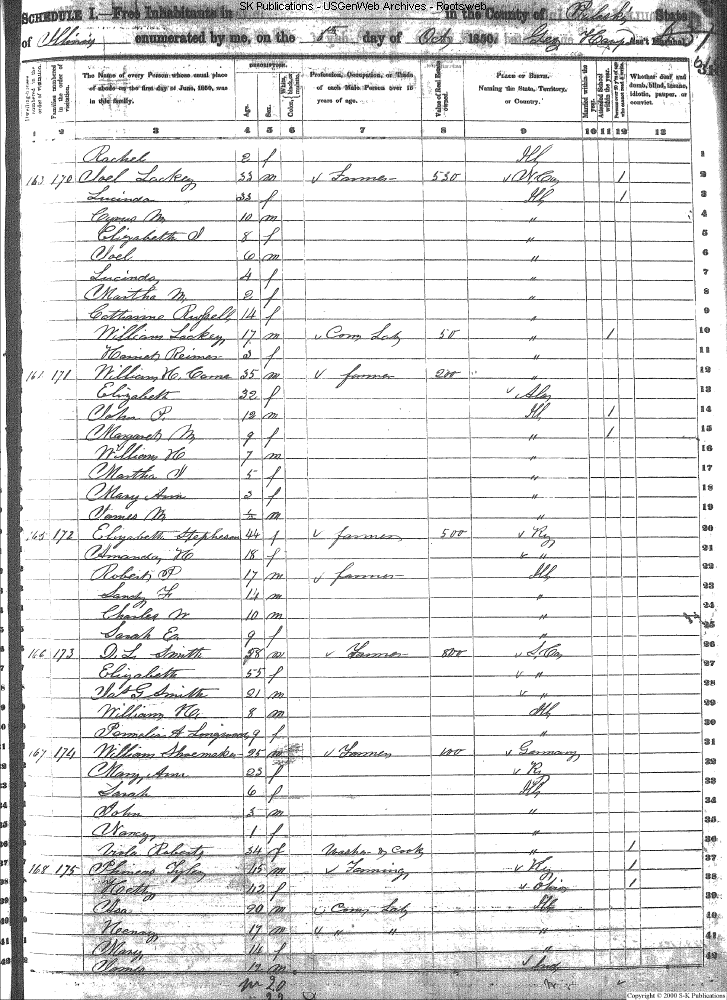 SK Publications - USGenWeb Archives - Rootsweb
SCHEDULE I.—Free Inhabitants in in the County of Pulaski State
of Illinois enumerated by me, on the 5th day of Octr 1850. Ass't Marshal.
DESCRIPTION.
Dwelling-houses numbered in the order of visitation. Families numbered in the order of visitation. The Name of every Person whose usual place of abode on the first day of June, 1850, was in this family. Age. Sex. White, black, or mulatto. Color Profession, Occupation, or Trade of each Male Person over 15 years of age. Value of Real Estate owned. PLACE OF BIRTH. Naming the State, Territory, or Country. Married within the year. Attended School within the year. Persons over 20 y'rs of age who cannot read & write. Whether deaf and dumb, blind, insane, idiotic, pauper, or convict.
1 2 3 4 5 6 7 8 9 10 11 12 13
Rachel 2 f Ill 1
163 170 Joel Lackey 33 m v Farmer 530 v N. Ca 1 2
Lucinda 33 f Ill 1 3
Cyrus M 10 m " 4
Elizabeth J 8 f " 5
Joel 6 m " 6
Lucinda 4 f " 7
Martha M. 2 f " 8
Catharine Russell 14 f " 9
William Lackey 17 m v Com Lab 50 " 1 10
Harriet 3 f " 11
171 William H. 35 m v farmer 200 " 12
Elizabeth 32 f v Ala 13
John P. 12 m Ill 1 14
Margaret M 9 f " 1 15
William H 7 m " 16
Martha J 5 f " 17
Mary Ann 3 f " 18
James M " 19
165 172 Elizabeth Stephenson 44 f v farmer 500 v Ky 20
Amanda H 18 f v " 21
Robert P 17 m v farmer Ill 22
Sandy F 14 m " 23
Charles W 10 m " 24
Sarah E. 9 f " 25
166 173 D. L. Smith 58 m v Farmer 800 v S. Ca 26
Elizabeth 55 f v " 27
Jas G Smith 21 m v " 28
William H. 8 m Ill 29
Permelia A 9 f " 30
167 174 William Shoemaker 25 m v Farmer 100 v Germany 31
Mary Ann 23 f v Ky 32
Sarah 6 f Ill 33
John 3 m " 34
Nancy 1 f " 35
Viola Roberts 34 f Washer & Cook " 1 36
168 175 Phineas Tyler 45 m v Tanning v Ky 1 37
Hetty 42 f v Ohio 1 38
Asa 20 m v Com Lab Ill 39
17 m v " " " 40
Mary 14 f " 41
James 12 m v 42
Copyright © 2000 S-K Publications